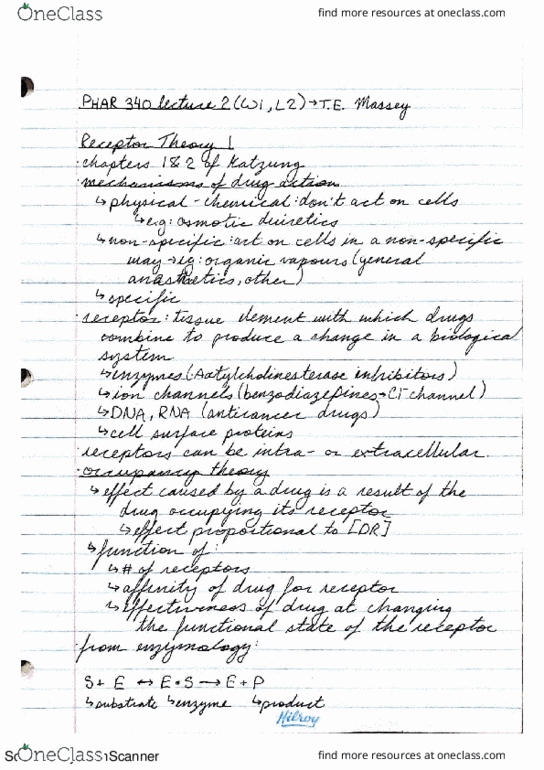 OneClass
find more resources at oneclass.com
PHAR 340 lecture 2 (W1, L2) → T.E. Massey
Receptor Theory 1
· chapters 1 & 2 of Katzung
· mechanisms of drug action
↳ physical - chemical: don't act on cells
↳ eg: osmotic diuretics
↳ non-specific: act on cells in a non-specific
way → eg: organic vapours (general
anasthetics, other)
↳ specific
· receptor: tissue element with which drugs
combine to produce a change in a biological
system
↳ enzymes (Acetylcholinesterase inhibitors)
↳ ion channels (benzodiazepines → Cl⁻ channel)
↳ DNA, RNA (anticancer drugs)
↳ cell surface proteins
· receptors can be intra- or extracellular
· occupancy theory
↳ effect caused by a drug is a result of the
drug occupying its receptor
↳ effect proportional to [DR]
↳ function of:
↳ # of receptors
↳ affinity of drug for receptor
↳ effectiveness of drug at changing
the functional state of the receptor
· from enzymology:
S + E ↔ E·S → E + P
↳ substrate ↳ enzyme ↳ product
Hilroy
OneClass
Scanner
find more resources at oneclass.com